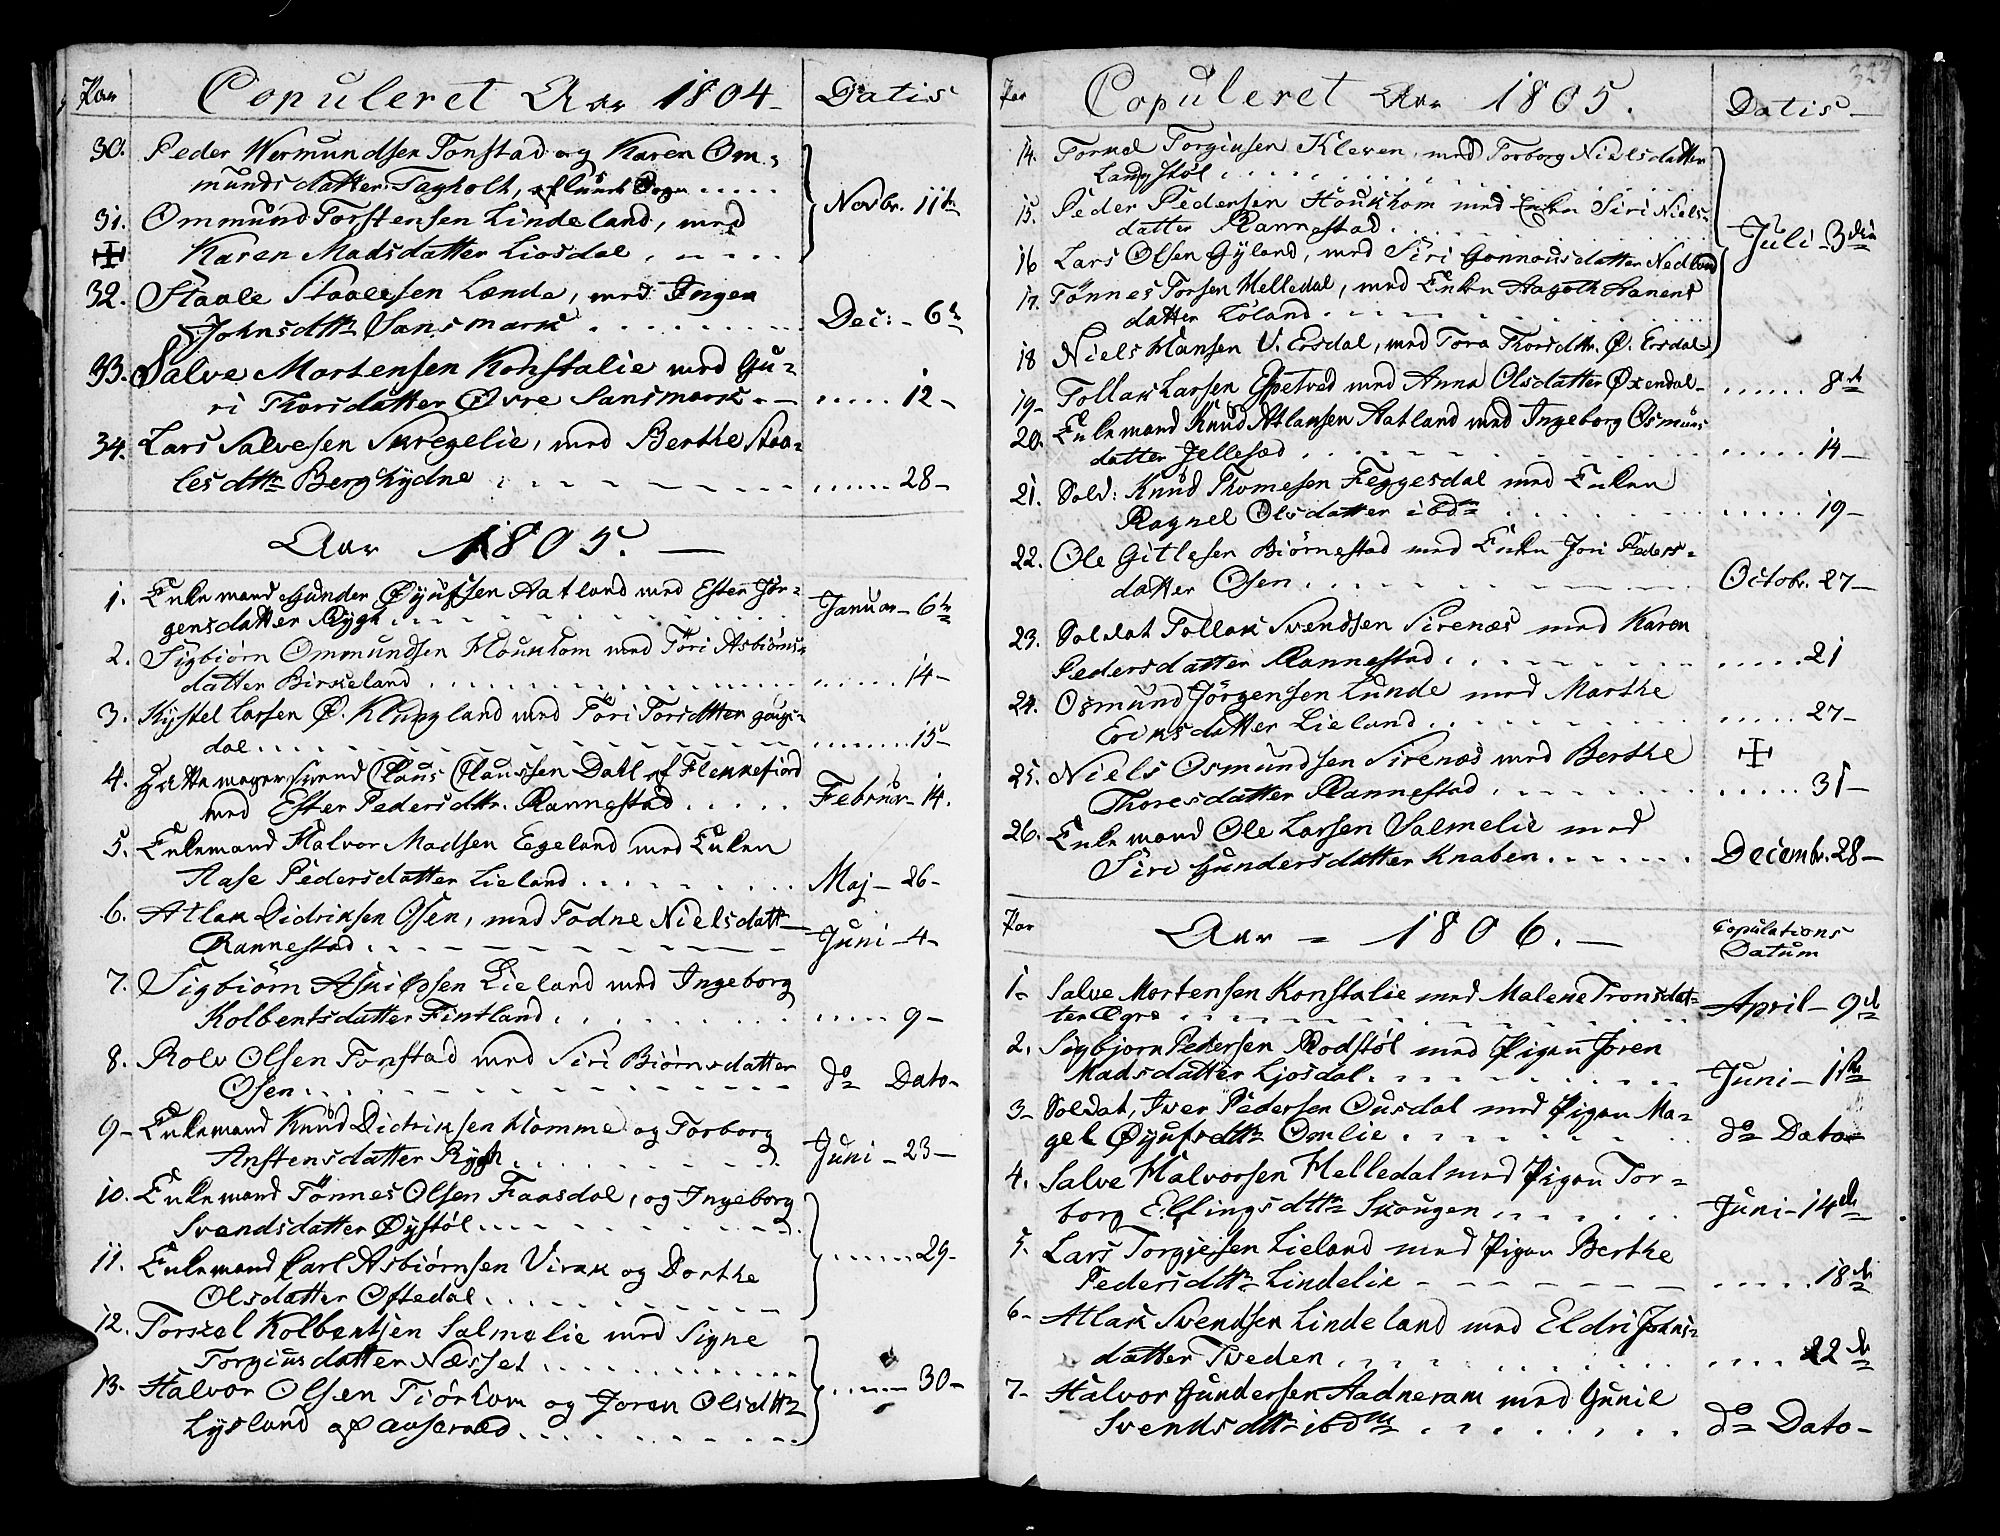 Par Copuleret Aar 1804 Datis
30. Peder Wermundsen Tonstad og Karen Om-
munds datter Tagholt, af Lunds Sogn
31. Ommund Torstensen Lindeland, med Novbr. 11te
Karen Madsdatter Liosdal
32. Staale Staalesen Lænde, med Inger
Johnsdttr Sansmark Dec: - 6te
33. Salve Mortensen Konstalie med Gu-
ri Thorsdatter Øvre Sansmark - 12 -
34. Lars Salvesen Skregelie, med Berthe Staa-
lesdttr Berghydne 28 -
Aar 1805. —
1. Enkemand Gunder Øyufsen Aatland med Ester Jør-
gensdatter Rygh Januar - 6te
2. Sigbiørn Ommundsen Houkhom med Töri Asbiörns-
datter Birkeland 14 -
3. Kystel Larsen Ø. Klungland med Töri Torsdatter
dal 15 -
4. Hattemagersvend Claus Claussen Dahl af Flekkefiord
med Ester Pedersdttr. Rannestad Februar - 14.
5. Enkemand Halvor Madsen Egeland med Enken
Aase Pedersdatter Lieland Maj - 26 -
6. Atlak Didriksen Osen, med Todne Nielsdatt
Rannestad Juni - 4 -
7. Sigbiörn Asuldsen Lieland med Ingeborg
Kolbentsdatter Fintland 9 -
8. Rolv Olsen Tonstad med Siri Biörnsdatter
Osen do Dato -
9 - Enkemand Knud Didriksen Homme og Torborg
Anstensdatter Rygh Juni - 23 -
10. Enkemand Tönnes Olsen Faasdal, og Ingeborg
Svendsdatter Øystöl
11. Enkemand Carl Asbiörnsen Virak og Dorthe 29 -
Olsdatter Oftedal
12. Torkel Kolbentsen Salmelie med Signe
Torgiusdatter Næsset
13. Halvor Olsen Tiörhom og Joren Olsdttr 30 -
Lysland af Aaserald
324
Par Copuleret Aar 1805. Datis -
14. Tornd Torgiusen Kleven, med Torborg Nielsdatter
Langstöl
15. Peder Pedersen Houkhom med Enken Siri Niels-
datter Rannestad Juli - 3die
16 Lars Olsen Gyland, med Siri Gonnousdatter Nedland
17. Tönnes Torsen Helledal, med Enken Aagoth Aanens
datter Löland
18 Niels Hansen V. Ersdal, med Tora Thorsdttr. Ø. Ersdal
19 - Tollak Larsen Espetved med Anna Olsdatter Øxendal - 8de
20. Enkemand Knud Atlaksen Aatland med Ingeborg Osmuns
datter Jellesad 14 -
21. Sold: Knud Thomesen Feggesdal med Enken
Ragnel Olsdatter ibdm 19 -
22. Ole Gitlesen Biörnestad med Enken Jori Peders-
datter Osen Octobr. 27 -
23. Soldat Tollak Svendsen Sirenæs med Karen
Pedersdatter Rannestad 21
24. Osmund Jörgensen Lunde med Marthe
Eriksdatter Lieland 27 -
25. Niels Osmundsen Sirenæs med Berthe
Thoresdatter Rannestad 31 -
26. Enkemand Ole Larsen Salmelie med
Siri Gundersdatter Knaben Decembr. 28 -
Par Aar - 1806. - Copulations
Datum
1 - Salve Mortensen Konstalie med Malene Tronsdat-
ter Egre April - 9de
2. Sigbjørn Pedersen Rodstöl med Pigen Joren
Madsdatter Ljosdal Juni - 1ste
3 - Soldat, Iver Pedersen Ousdal med Pigen Ma-
gel Øyufsdttr Omlie do Dato
4. Salve Halvorsen Helledal med Pigen Tor-
borg Ellingsdttr Skougen Juni - 14de
5. Lars Torgjesen Lieland med Pigen Berthe
Pedersdttr Lindelie 18de
6 - Atlak Svendsen Lindeland med Eldri Johns-
datter Tveden 22de
7 - Halvor Gundersen Aadneram med Gunil
Svendsdttr ibdm do Dato -